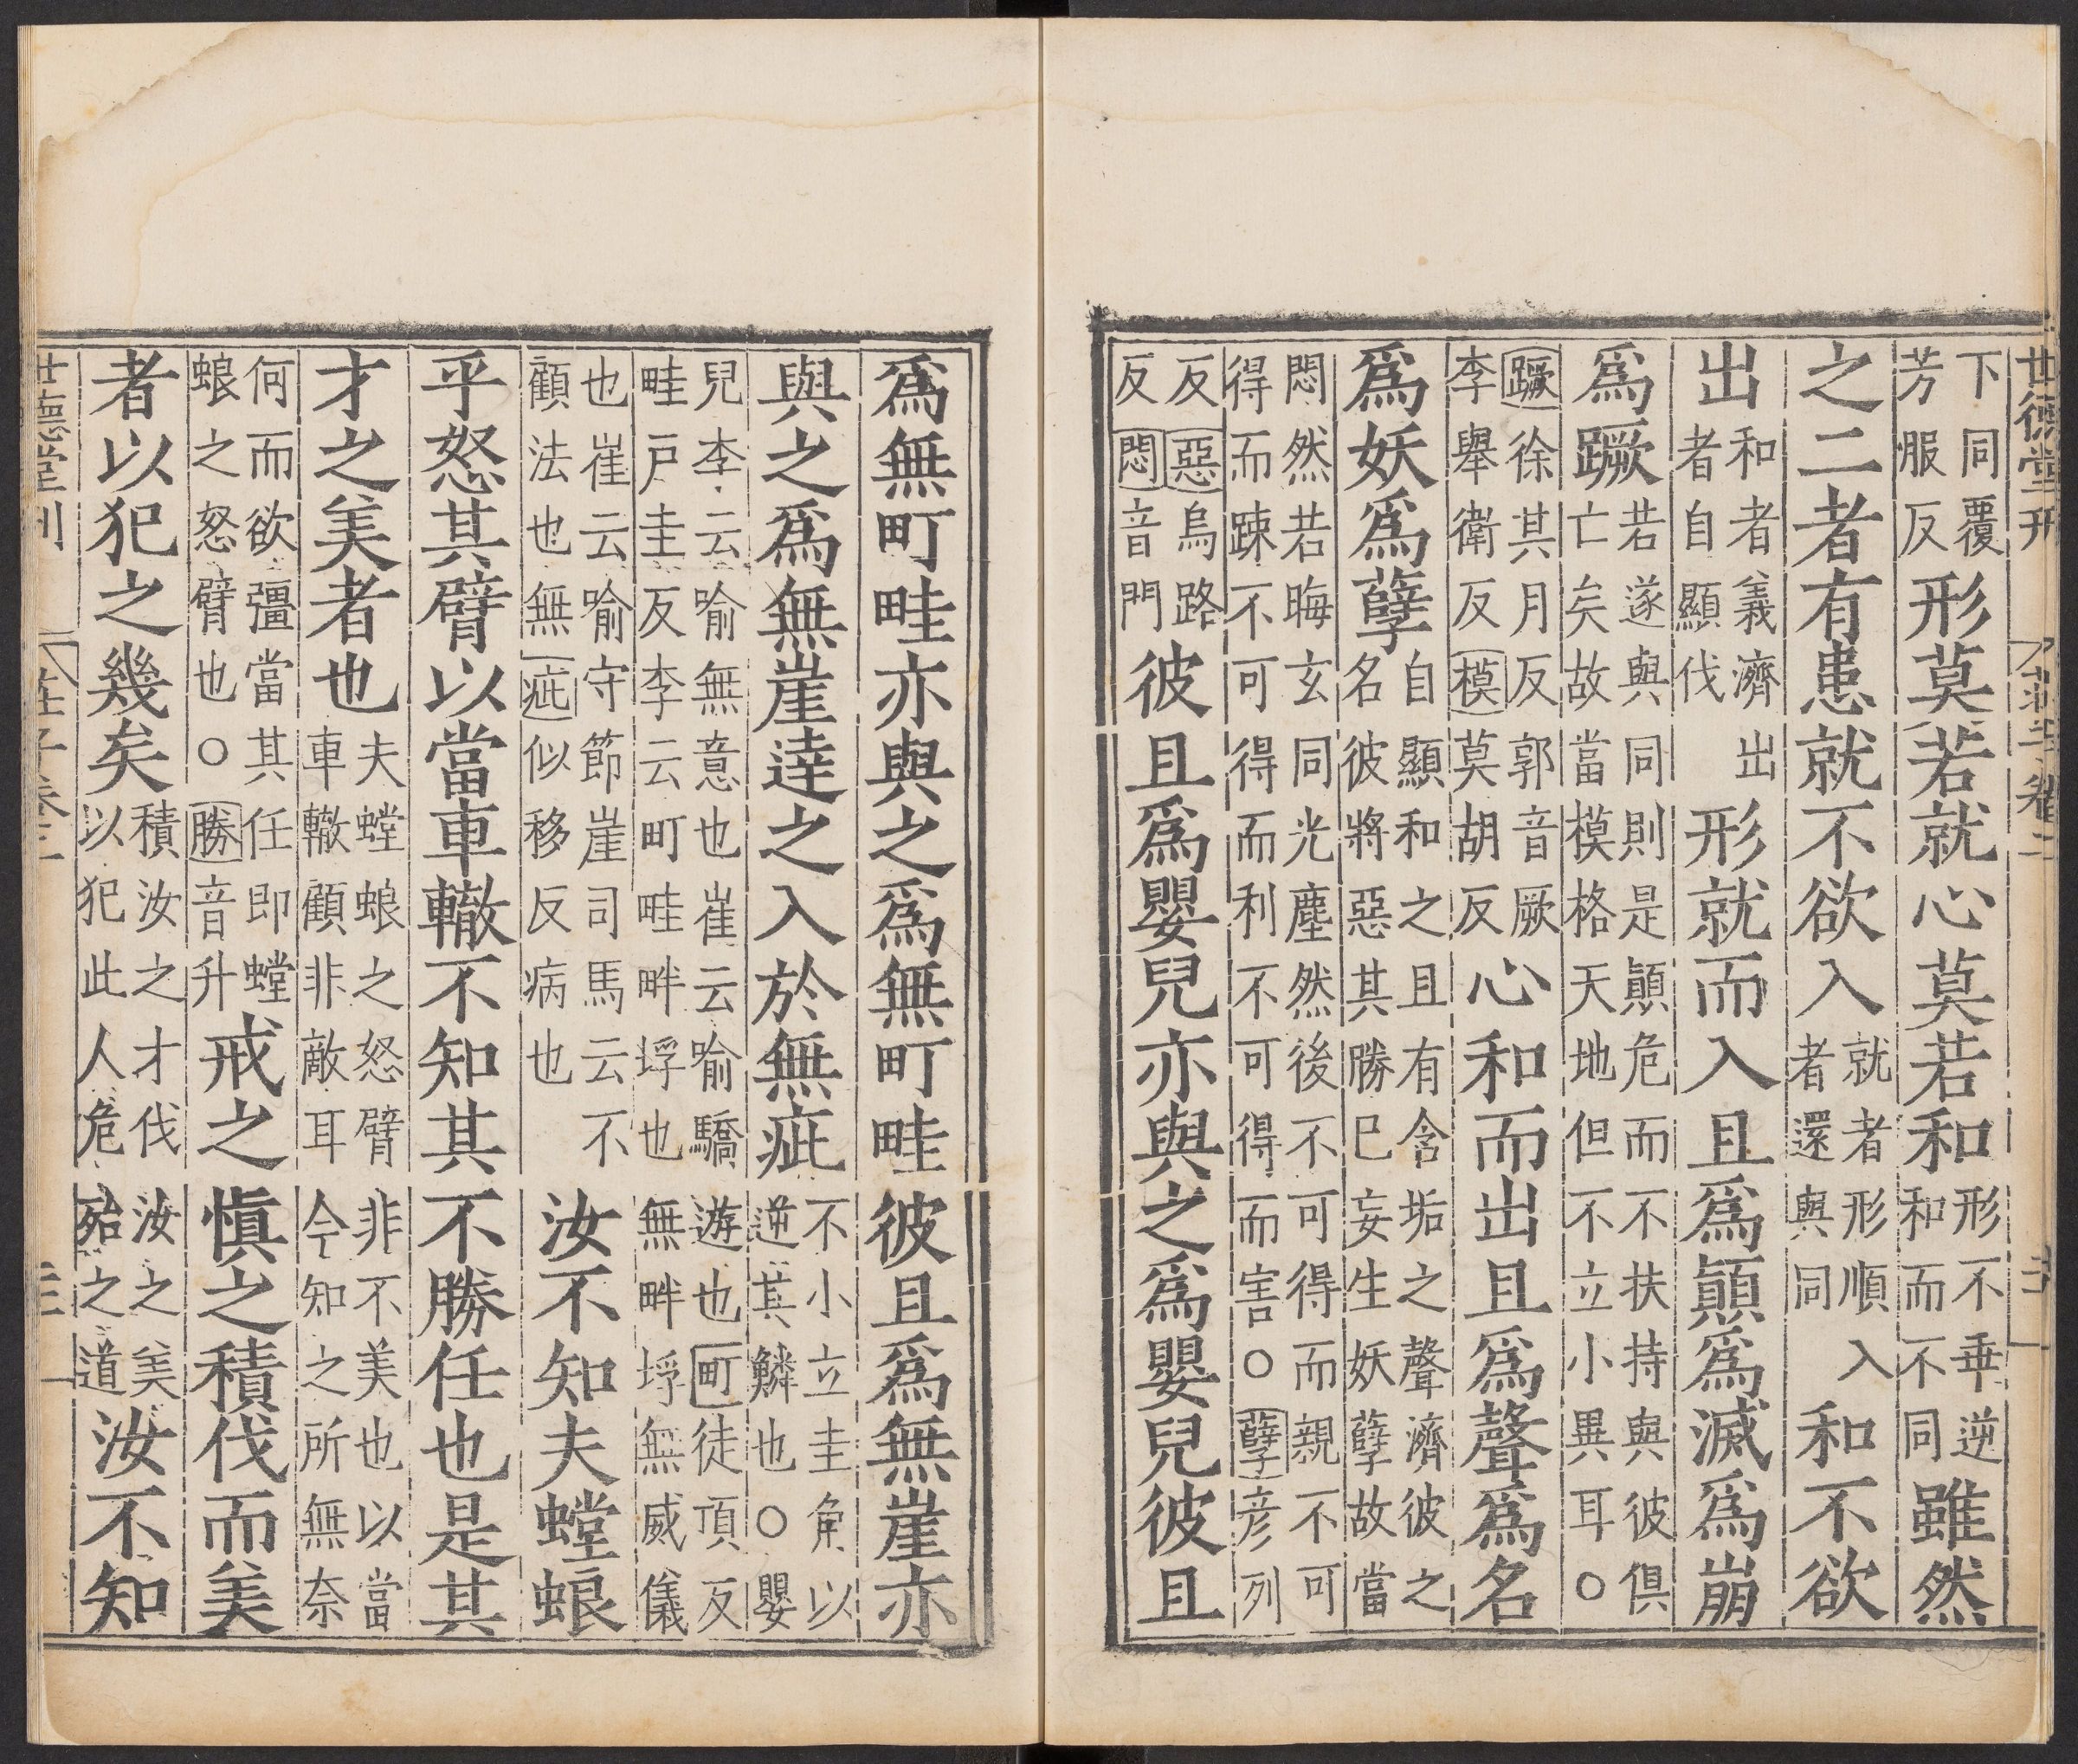 世德堂刊
下同覆芳服反形莫若就心莫若和形不乖逆和而不同雖然
之二者有患就不欲入就者形順入者還與同和不欲
出和者義濟出者自顯伐形就而入且爲顛爲滅爲崩
爲蹶若遂與同則是顛危而不扶持與彼俱亡矣故當模格天地但不立小異耳○
蹶徐其月反郭音厥李舉衛反模莫胡反心和而出且爲聲爲名
爲妖爲孽自顯和之且有含垢之聲濟彼之名彼將惡其勝己妄生妖孽故當
悶然若晦玄同光塵然後不可得而親不可得而踈不可得而利不可得而害○孽彦列
反惡烏路反悶音門彼且爲嬰兒亦與之爲嬰兒彼且
爲無町畦亦與之爲無町畦彼且爲無崖亦
與之爲無崖達之入於無疵不小立圭角以逆其鱗也○嬰
兒李云喻無意也崔云喻驕遊也町徒頂反畦戸圭反李云町畦畔埒也無畔埒無威儀
也崔云喻守節崖司馬云不顧法也無疵似移反病也汝不知夫螳蜋
乎怒其臂以當車轍不知其不勝任也是其
才之美者也夫螳蜋之怒臂非不美也以當車轍顧非敵耳今知之所無奈
何而欲彊當其任即螳蜋之怒臂也○勝音升戒之愼之積伐而美
者以犯之幾矣積汝之才伐汝之美以犯此人危殆之道汝不知
世德堂刊 莊子卷二